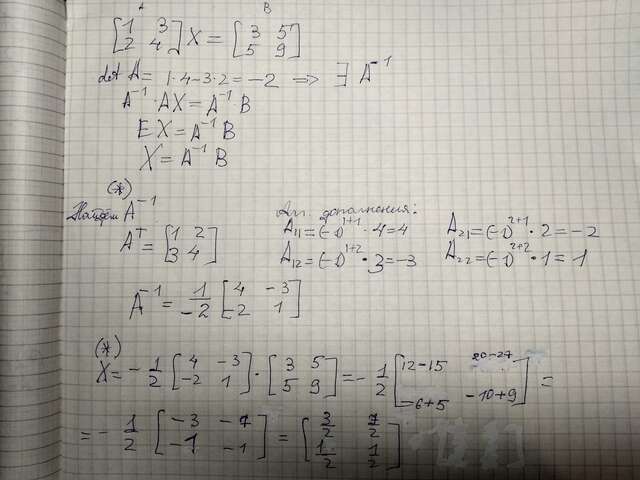 A B
[1 3; 2 4] X = [3 5; 5 9]
det A = 1·4-3·2 = -2 => ∃ A⁻¹
A⁻¹·AX = A⁻¹·B
EX = A⁻¹B
X = A⁻¹B
(*)
Найдём A⁻¹
Aᵀ = [1 2; 3 4]
Алг. дополнения:
A₁₁ = (-1)¹⁺¹·4 = 4 A₂₁ = (-1)²⁺¹·2 = -2
A₁₂ = (-1)¹⁺²·3 = -3 A₂₂ = (-1)²⁺²·1 = 1
A⁻¹ = 1/-2 [4 -3; -2 1]
(*)
X = -1/2 [4 -3; -2 1]·[3 5; 5 9] = -1/2 [12-15 20-27; -6+5 -10+9] =
= -1/2 [-3 -7; -1 -1] = [3/2 7/2; 1/2 1/2]